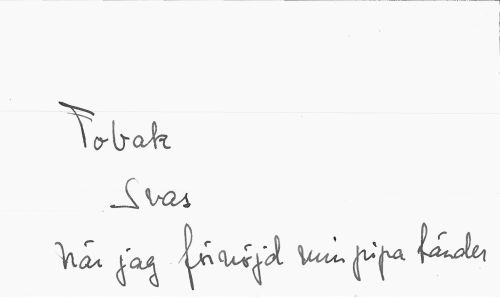 Tobak
Svas
När jag förnöjd min pipa tänder